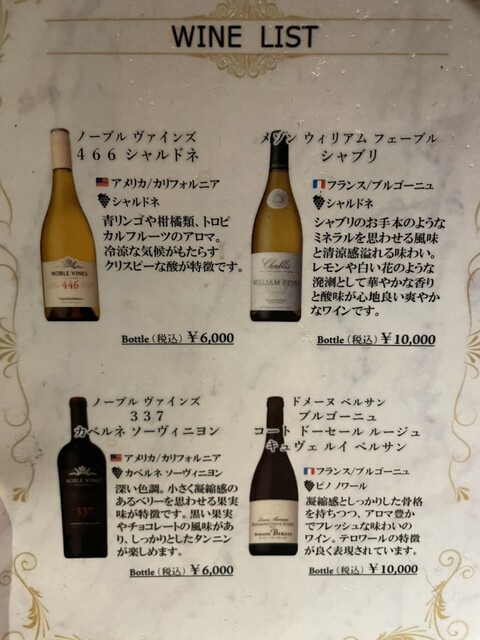 WINE LIST
ノーブル ヴァインズ
466 シャルドネ
アメリカ/カリフォルニア
シャルドネ
青リンゴや柑橘類、トロピ
カルフルーツのアロマ。
冷涼な気候がもたらす
クリスピーな酸が特徴です。
NOBLE VINES
446
CHARDONNAY
Bottle（税込）￥6,000
メゾン ウィリアム フェーブル
シャブリ
フランス/ブルゴーニュ
シャルドネ
シャブリのお手本のような
ミネラルを思わせる風味
と清涼感溢れる味わい。
レモンや白い花のような
溌溂として華やかな香り
と酸味が心地良い爽やか
なワインです。
Chablis
WILLIAM FEVRE
Bottle（税込）￥10,000
ノーブル ヴァインズ
337
カベルネ ソーヴィニヨン
アメリカ/カリフォルニア
カベルネ ソーヴィニヨン
深い色調。小さく凝縮感の
あるベリーを思わせる果実
味が特徴です。黒い果実
やチョコレートの風味があ
り、しっかりとしたタンニン
が楽しめます。
NOBLE VINES
337
Bottle（税込）￥6,000
ドメーヌ ベルサン
ブルゴーニュ
コート ドーセール ルージュ
キュヴェ ルイ ベルサン
フランス/ブルゴーニュ
ピノノワール
凝縮感としっかりした骨格
を持ちつつ、アロマ豊か
でフレッシュな味わいの
ワイン。テロワールの特徴
が良く表現されています。
Bottle（税込）￥10,000